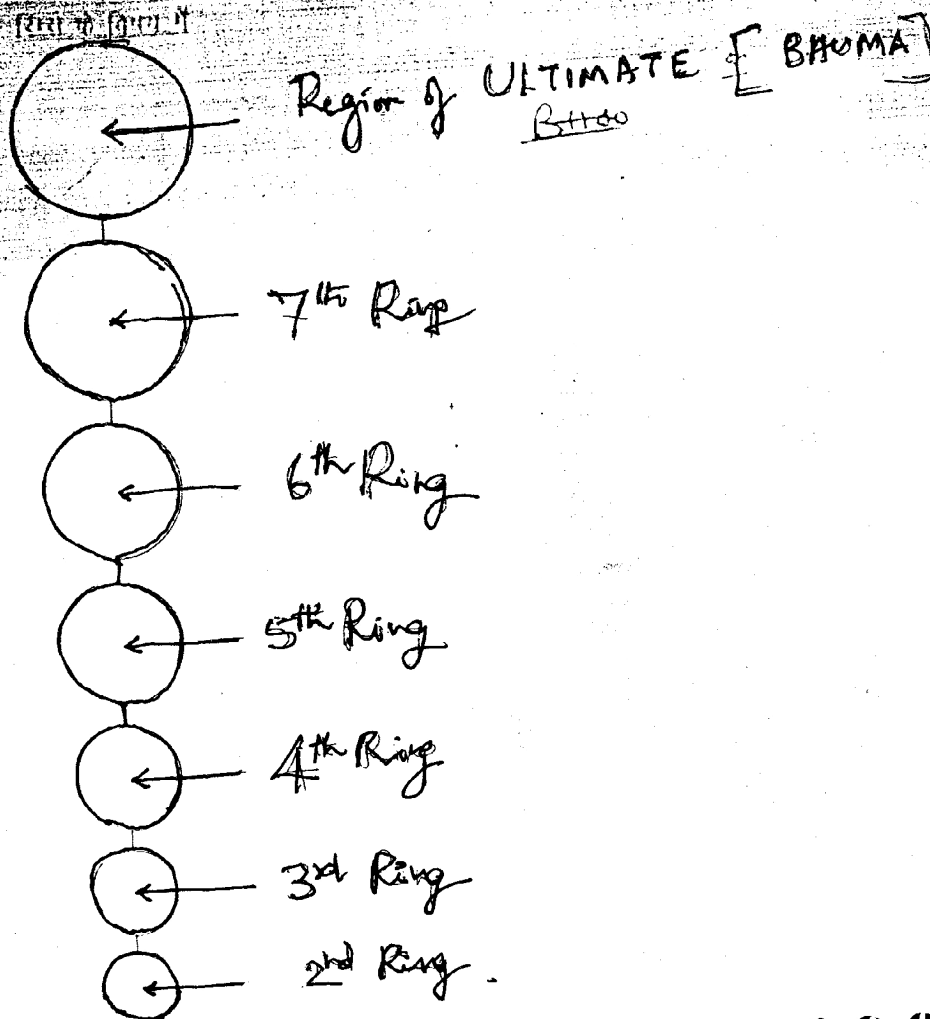 Region of ULTIMATE [ BHUMA ]
BHOO
7th Ring
6th Ring
5th Ring
4th Ring
3rd Ring
2nd Ring.